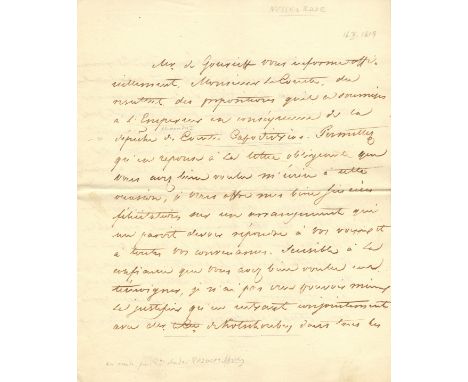 NESSELRODE
Mr. de Gourieff vous informe offi-
ciellement, Monsieur le Comte, du
resultat des propositions qu'il a soumises
à l'Empereur en conséquence de la
dépêche du Comte Capo d'Istrias. Permettez
qu'en reponse à la lettre obligeante que
vous avez bien voulu m'écrire à cette
occasion, je vous offre mes bien sincères
félicitations sur un arrangement qui
me paroit devoir répondre à vos voeux et
à toutes vos convenances. Sensible à la
confiance que vous avez bien voulu me
témoigner, je n'ai pas cru pouvoir mieux
la justifier qu'en entrant conjointement
avec de Kotchoubey dans tous les